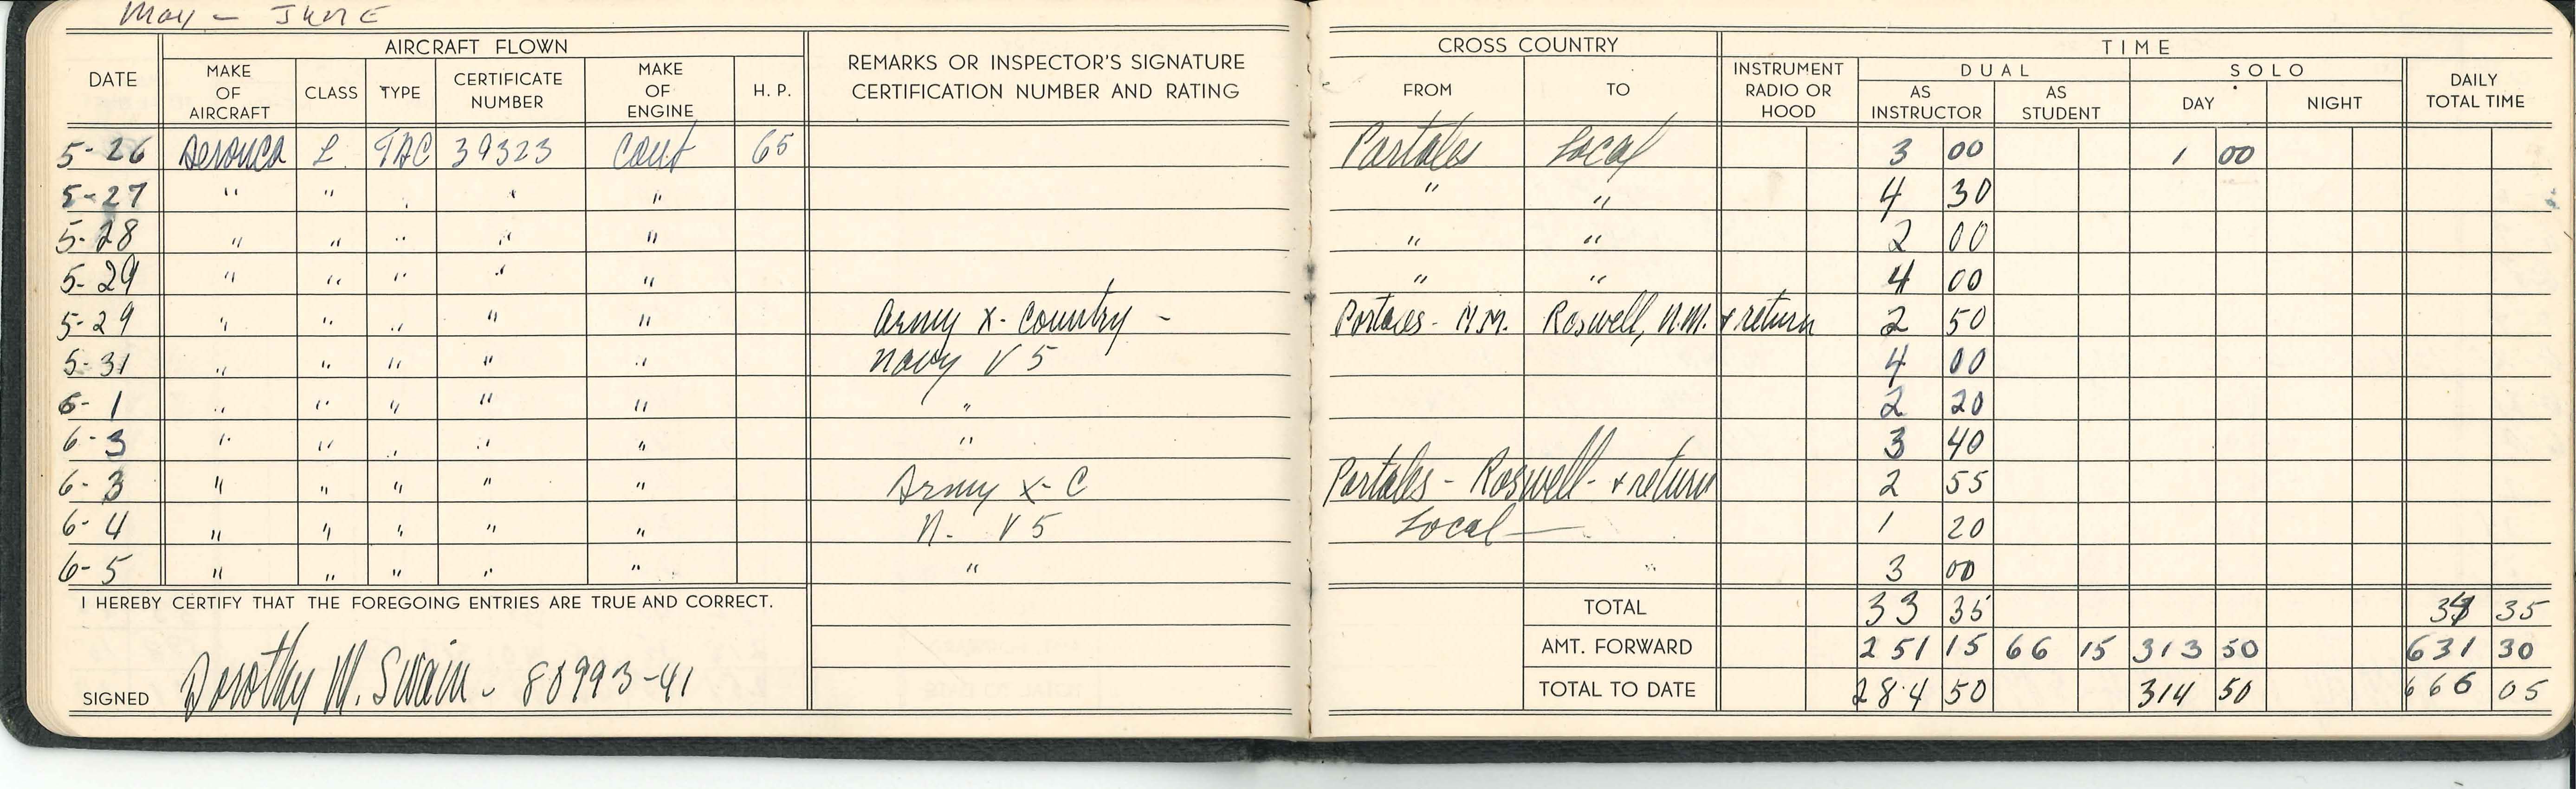 May - June
DATE AIRCRAFT FLOWN REMARKS OR INSPECTOR'S SIGNATURE CERTIFICATION NUMBER AND RATING CROSS COUNTRY TIME
MAKE OF AIRCRAFT CLASS TYPE CERTIFICATE NUMBER MAKE OF ENGINE H. P. FROM TO INSTRUMENT RADIO OR HOOD DUAL SOLO DAILY TOTAL TIME
AS INSTRUCTOR AS STUDENT DAY NIGHT
5-26 Aeronca L TAC 39323 Cont 65 Portales Local 3 00 1 00
5-27 " " " " " " " 4 30
5-28 " " " " " " " 2 00
5-29 " " " " " " " 4 00
5-29 " " " " " Army X-Country - Portales - N.M. Roswell, N.M. & return 2 50
5-31 " " " " " Navy V5 4 00
6-1 " " " " " " 2 20
6-3 " " " " " " 3 40
6-3 " " " " " Army X-C Portales - Roswell - & return 2 55
6-4 " " " " " N. V5 Local — 1 20
6-5 " " " " " " " 3 00
I HEREBY CERTIFY THAT THE FOREGOING ENTRIES ARE TRUE AND CORRECT. TOTAL 33 35 35
AMT. FORWARD 251 15 66 15 313 50 631 30
SIGNED Dorothy M. Swain - 80993-41 TOTAL TO DATE 284 50 314 50 666 05